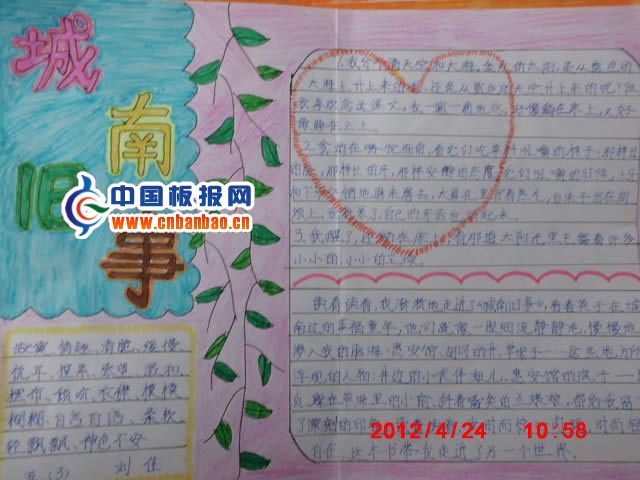 城
南
旧
事
中国板报网
www.cnbanbao.cn
1.我分不清天空和大海,金黄的太阳,是从蓝色的
大海上升上来的呢,还是从蓝色的天空升上来的呢!但
我喜欢念这课文,我一遍一遍地念,好像躺在床上,又好
像睡在云上。
2.我站在骆驼面前,看它们吃草料咀嚼的样子:那样丑
的脸,那样长的牙,那样安静的态度。它们咀嚼的时候,上牙
和下牙交错地磨来磨去,大鼻孔里冒着热气,白沫子沾在胡
须上,我看呆了,自己的牙齿也动起来。
3.我醒了,还躺在床上,看那道太阳光里飞舞着许多
小小的,小小的尘埃。
读着读着,我渐渐地走进了《城南旧事》,看着英子在城
南边的幸福童年,他们就像一股细流静静地,慢慢地
入我的脑海:惠安馆、胡同的井、草垛子……这些地方
浮现的人物:井边的小伙伴妞儿、惠安馆的疯子
在草垛里的小偷、斜着嘴笑的兰姨娘,都给我留
了深刻的印象。
自在,这本书带我走进了另一个世界。
寂寞、情趣、清脆、缓慢
优年、模袅、张望、派和
摆布、倾听、衣襟、模模
糊糊、自言自语、柔软、
轻飘飘、神色不安
五(3) 刘佳
2012/4/24 10:58